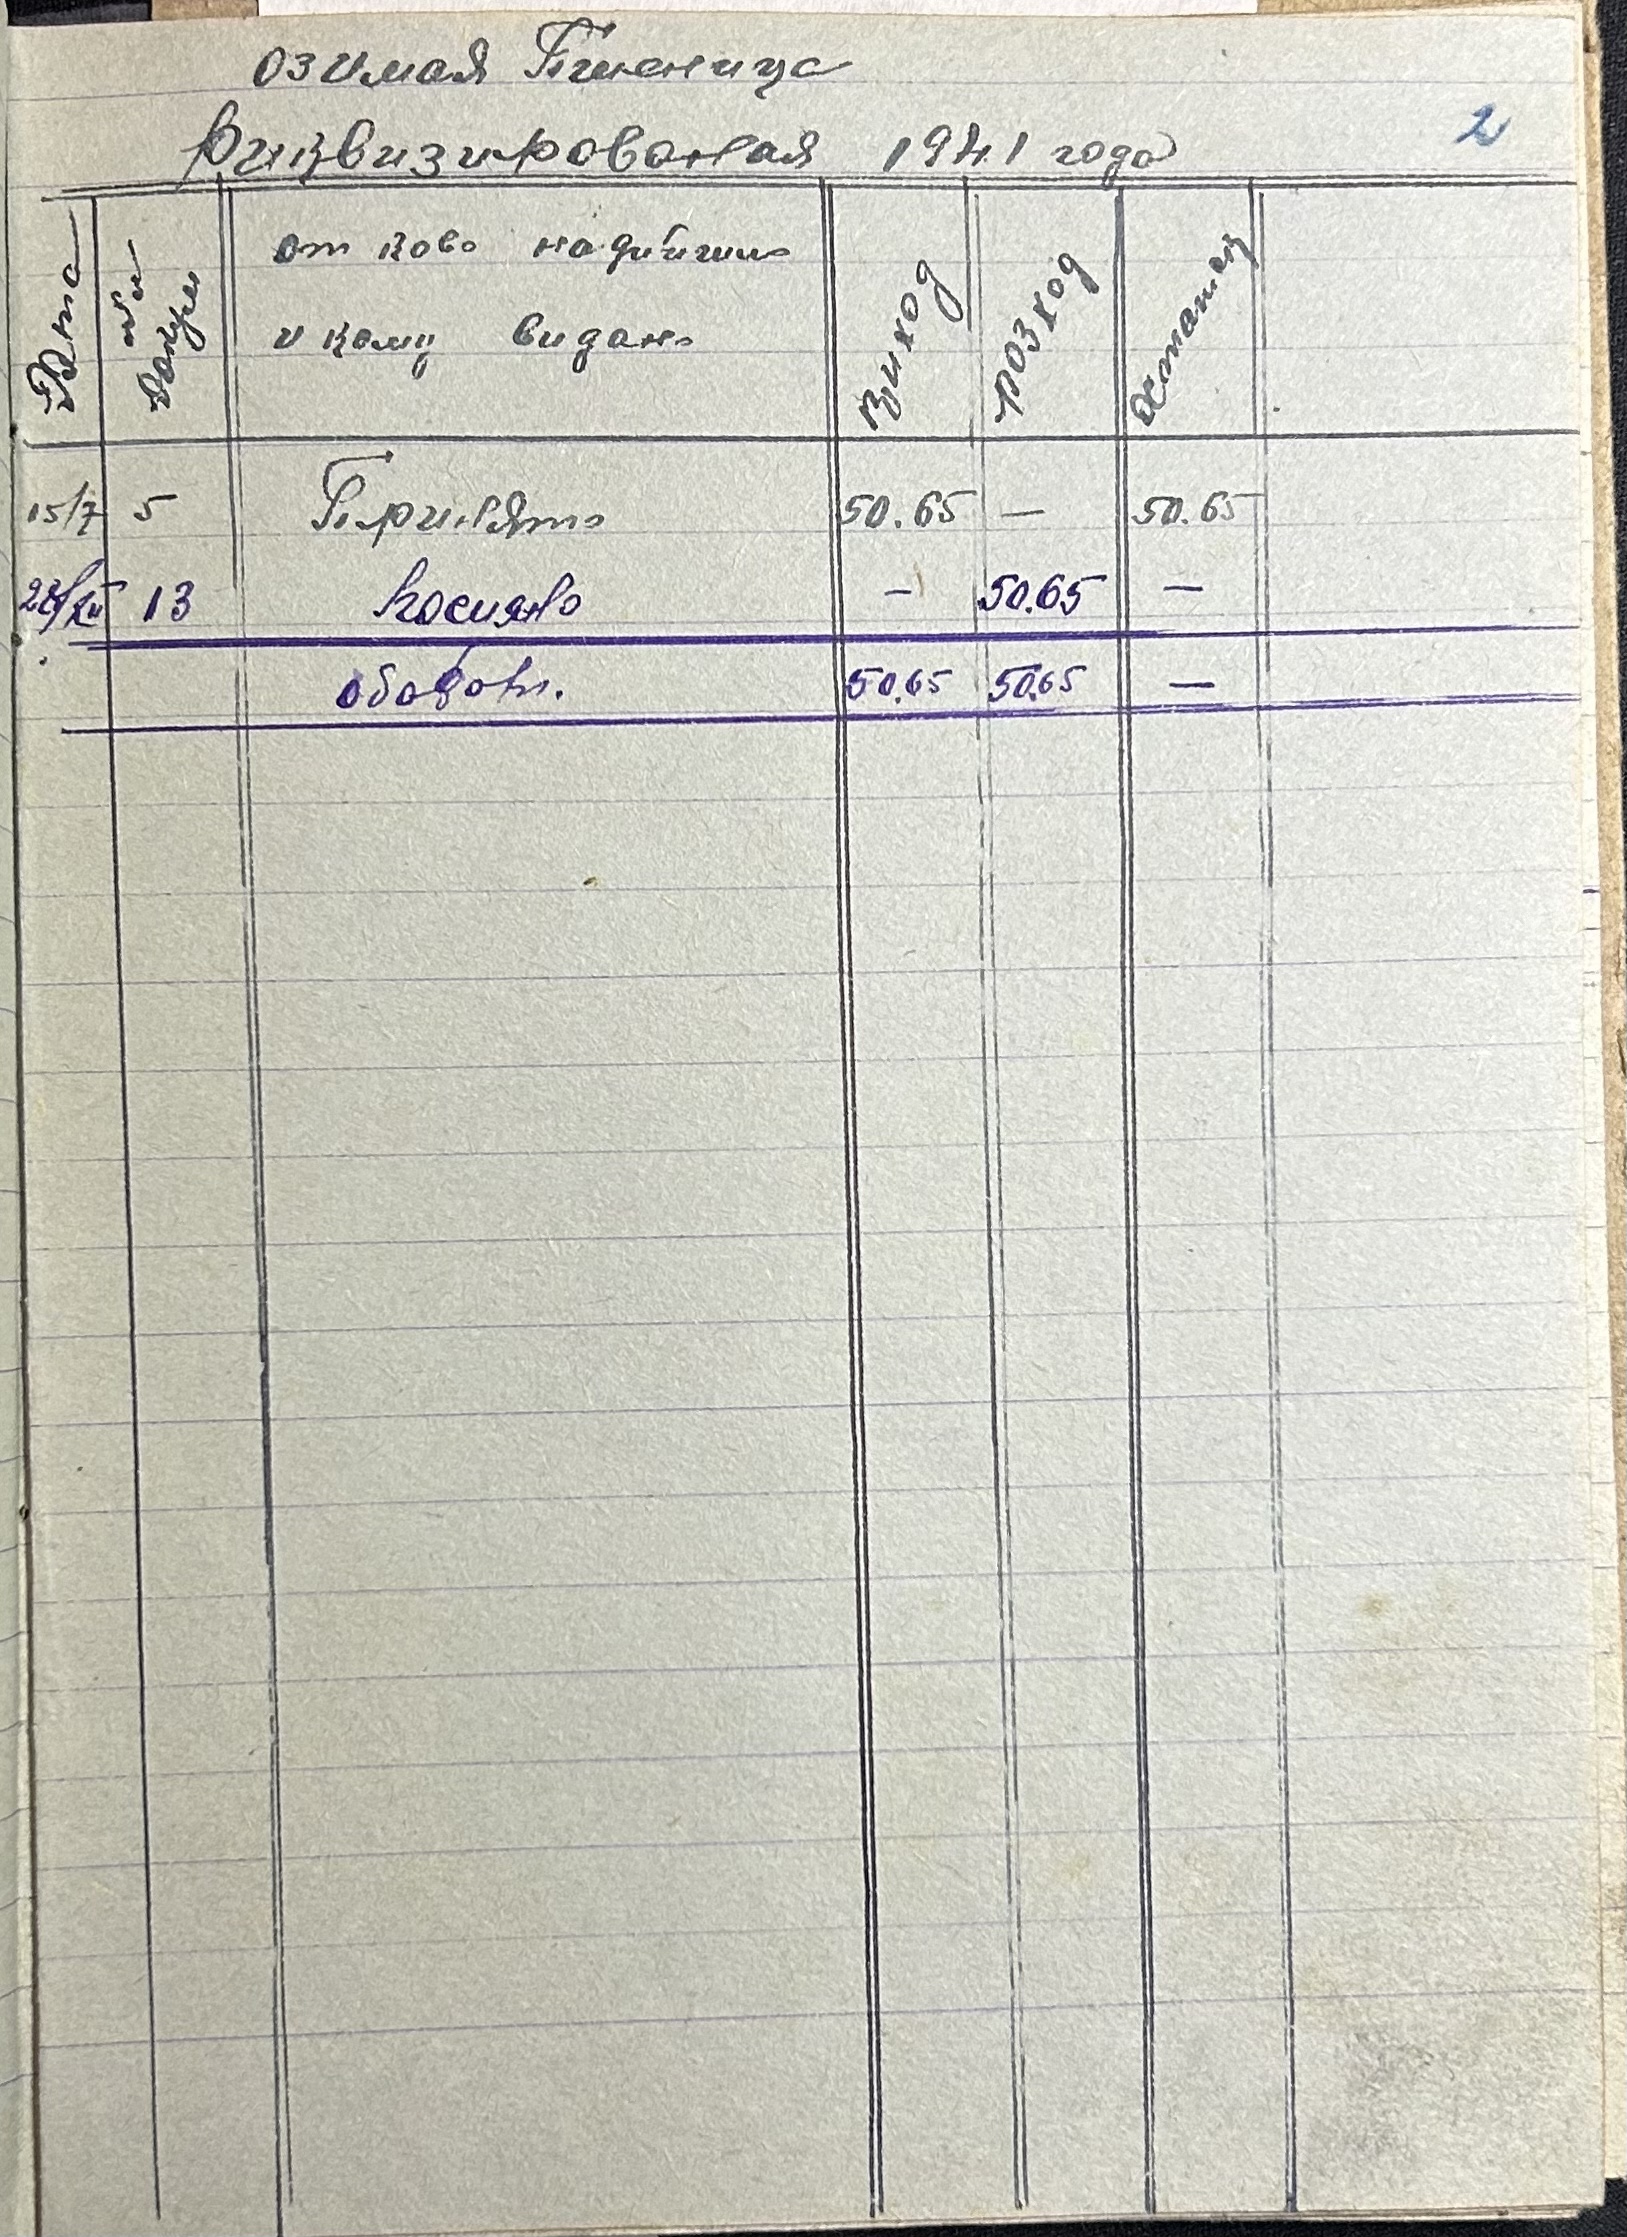 озимая Пшеница
риквизированая 1941 года
2
Дата
№ Докум
от ково надійшло
и кому видано
розход
Остаток
15/7 5 Принято 50.65 — 50.65
28/XII 13 — 50.65 —
оборот. 50.65 50.65 —